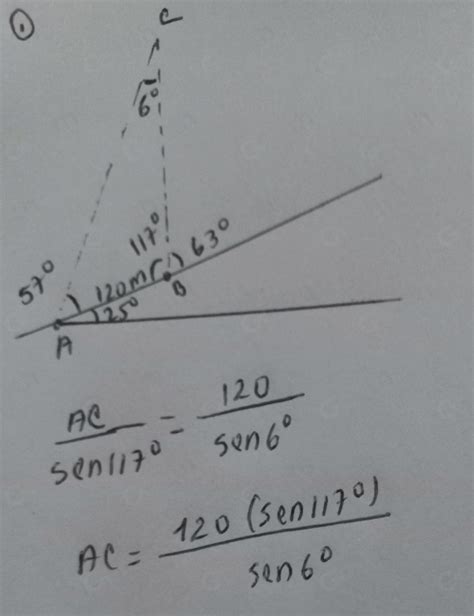 1
C
6°
117°
63°
57°
120m
B
25°
A
AC/sen117° = 120/sen6°
AC = 120 (sen117°)/sen6°